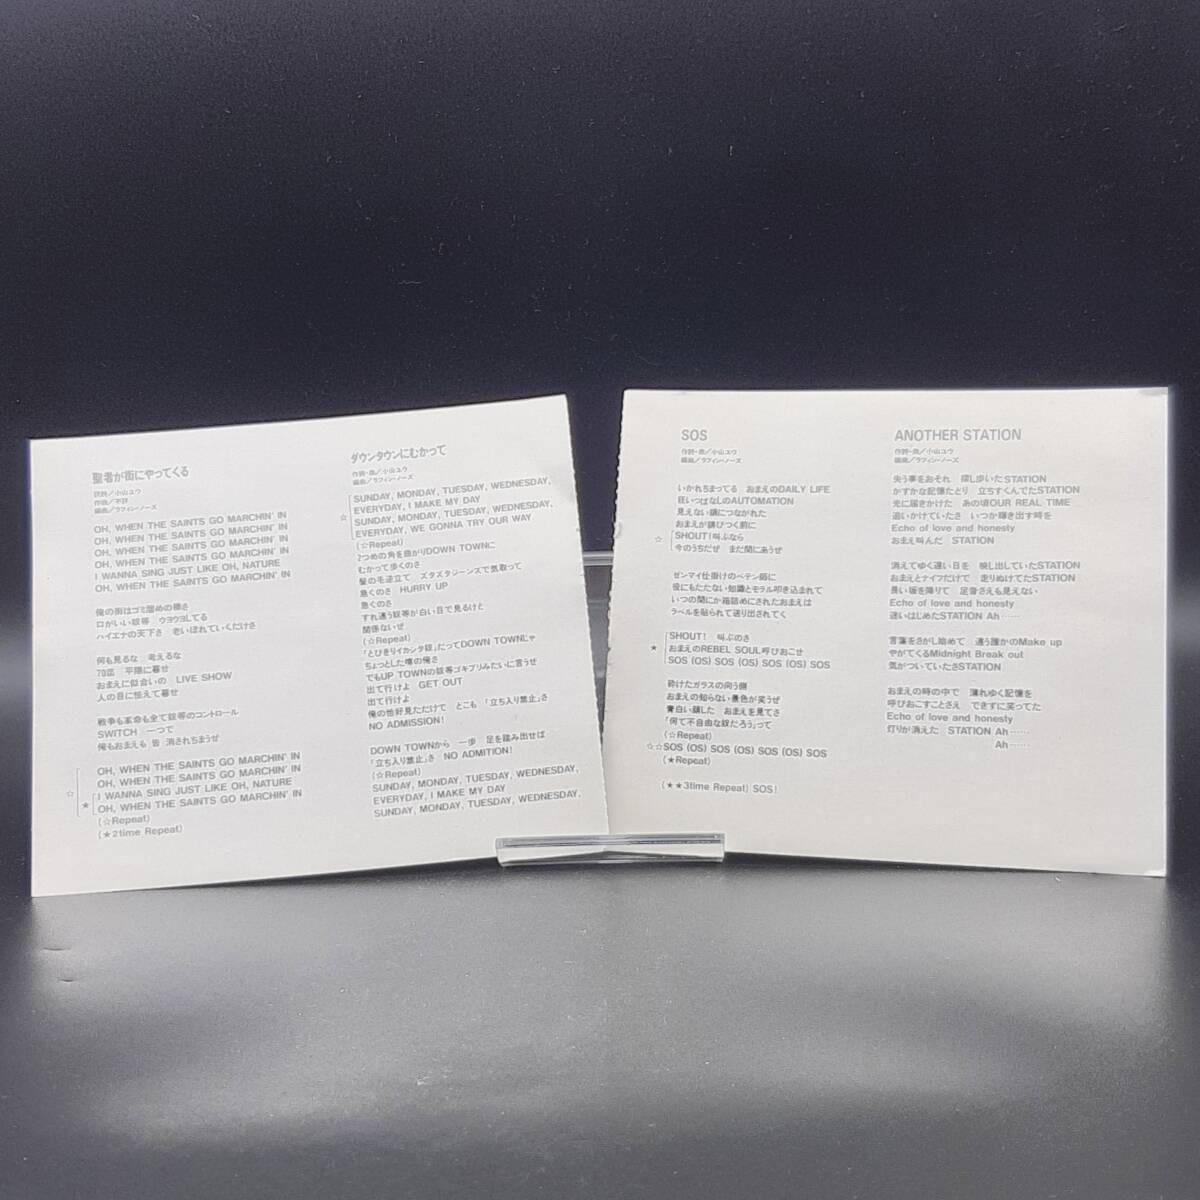 聖者が街にやってくる
訳詞/小山ユウ
作曲/不詳
編曲/ラフィン・ノーズ
OH, WHEN THE SAINTS GO MARCHIN' IN
OH, WHEN THE SAINTS GO MARCHIN' IN
OH, WHEN THE SAINTS GO MARCHIN' IN
OH, WHEN THE SAINTS GO MARCHIN' IN
I WANNA SING JUST LIKE OH, NATURE
OH, WHEN THE SAINTS GO MARCHIN' IN
俺の街はゴミ溜めの様さ
口がいい奴等 ウヨウヨしてる
ハイエナの天下さ 老いぼれていくだけさ
何も見るな 考えるな
平隠に暮せ
おまえに似合いの LIVE SHOW
人の目に怯えて暮せ
戦争も革命も全て奴等のコントロール
SWITCH 一つで
俺もおまえも 皆 消されちまうぜ
OH, WHEN THE SAINTS GO MARCHIN' IN
OH, WHEN THE SAINTS GO MARCHIN' IN
☆ I WANNA SING JUST LIKE OH, NATURE
★ OH, WHEN THE SAINTS GO MARCHIN' IN
(☆Repeat)
(★2time Repeat)
ダウンタウンにむかって
作詞・曲/小山ユウ
編曲/ラフィン・ノーズ
SUNDAY, MONDAY, TUESDAY, WEDNESDAY,
EVERYDAY, I MAKE MY DAY
☆ SUNDAY, MONDAY, TUESDAY, WEDNESDAY,
EVERYDAY, WE GONNA TRY OUR WAY
(☆Repeat)
2つめの角を曲がりDOWN TOWNに
むかって歩くのさ
髪の毛逆立て ズタズタジーンズで気取って
急ぐのさ HURRY UP
急ぐのさ
すれ違う奴等が白い目で見るけど
関係ないぜ
(☆Repeat)
「とびきりイカシタ奴」だってDOWN TOWNにゃ
ちょっとした噂の俺さ
でもUP TOWNの奴等ゴキブリみたいに言うぜ
出て行けよ GET OUT
出て行けよ
俺の恰好見ただけで どこも 「立ち入り禁止」さ
NO ADMISSION!
DOWN TOWNから 一歩 足を踏み出せば
「立ち入り禁止」さ NO ADMITION!
(☆Repeat)
SUNDAY, MONDAY, TUESDAY, WEDNESDAY,
EVERYDAY, I MAKE MY DAY
SUNDAY, MONDAY, TUESDAY, WEDNESDAY,
SOS
作詞・曲/小山ユウ
編曲/ラフィン・ノーズ
いかれちまってる おまえのDAILY LIFE
狂いっぱなしのAUTOMATION
見えない鎖につながれた
おまえが錆びつく前に
☆ SHOUT!叫ぶなら
今のうちだぜ まだ間にあうぜ
ゼンマイ仕掛けのペテン師に
役にもたたない知識とモラル叩き込まれて
いつの間にか箱詰めにされたおまえは
ラベルを貼られて送り出されてく
SHOUT! 叫ぶのさ
★ おまえのREBEL SOUL呼びおこせ
SOS (OS) SOS (OS) SOS (OS) SOS
砕けたガラスの向う側
おまえの知らない景色が笑うぜ
青白い顔した おまえを見てさ
「何て不自由な奴だろう」って
(☆Repeat)
☆☆SOS (OS) SOS (OS) SOS (OS) SOS
(★Repeat)
(★★3time Repeat) SOS!
ANOTHER STATION
作詞・曲/小山ユウ
編曲/ラフィン・ノーズ
失う事をおそれ 探し歩いたSTATION
かすかな記憶たどり 立ちすくんでたSTATION
光に届きかけた あの頃OUR REAL TIME
追いかけていたさ いつか輝き出す時を
Echo of love and honesty
おまえ叫んだ STATION
消えてゆく遠い日を 映し出していたSTATION
おまえとナイフだけで 走りぬけてたSTATION
長い坂を降りて 足音さえも見えない
Echo of love and honesty
迷いはじめたSTATION Ah……
言葉をさがし始めて 違う誰かのMake up
やがてくるMidnight Break out
気がついていたさSTATION
おまえの時の中で 薄れゆく記憶を
呼びおこすことさえ できずに笑ってた
Echo of love and honesty
灯りが消えた STATION Ah……
Ah……